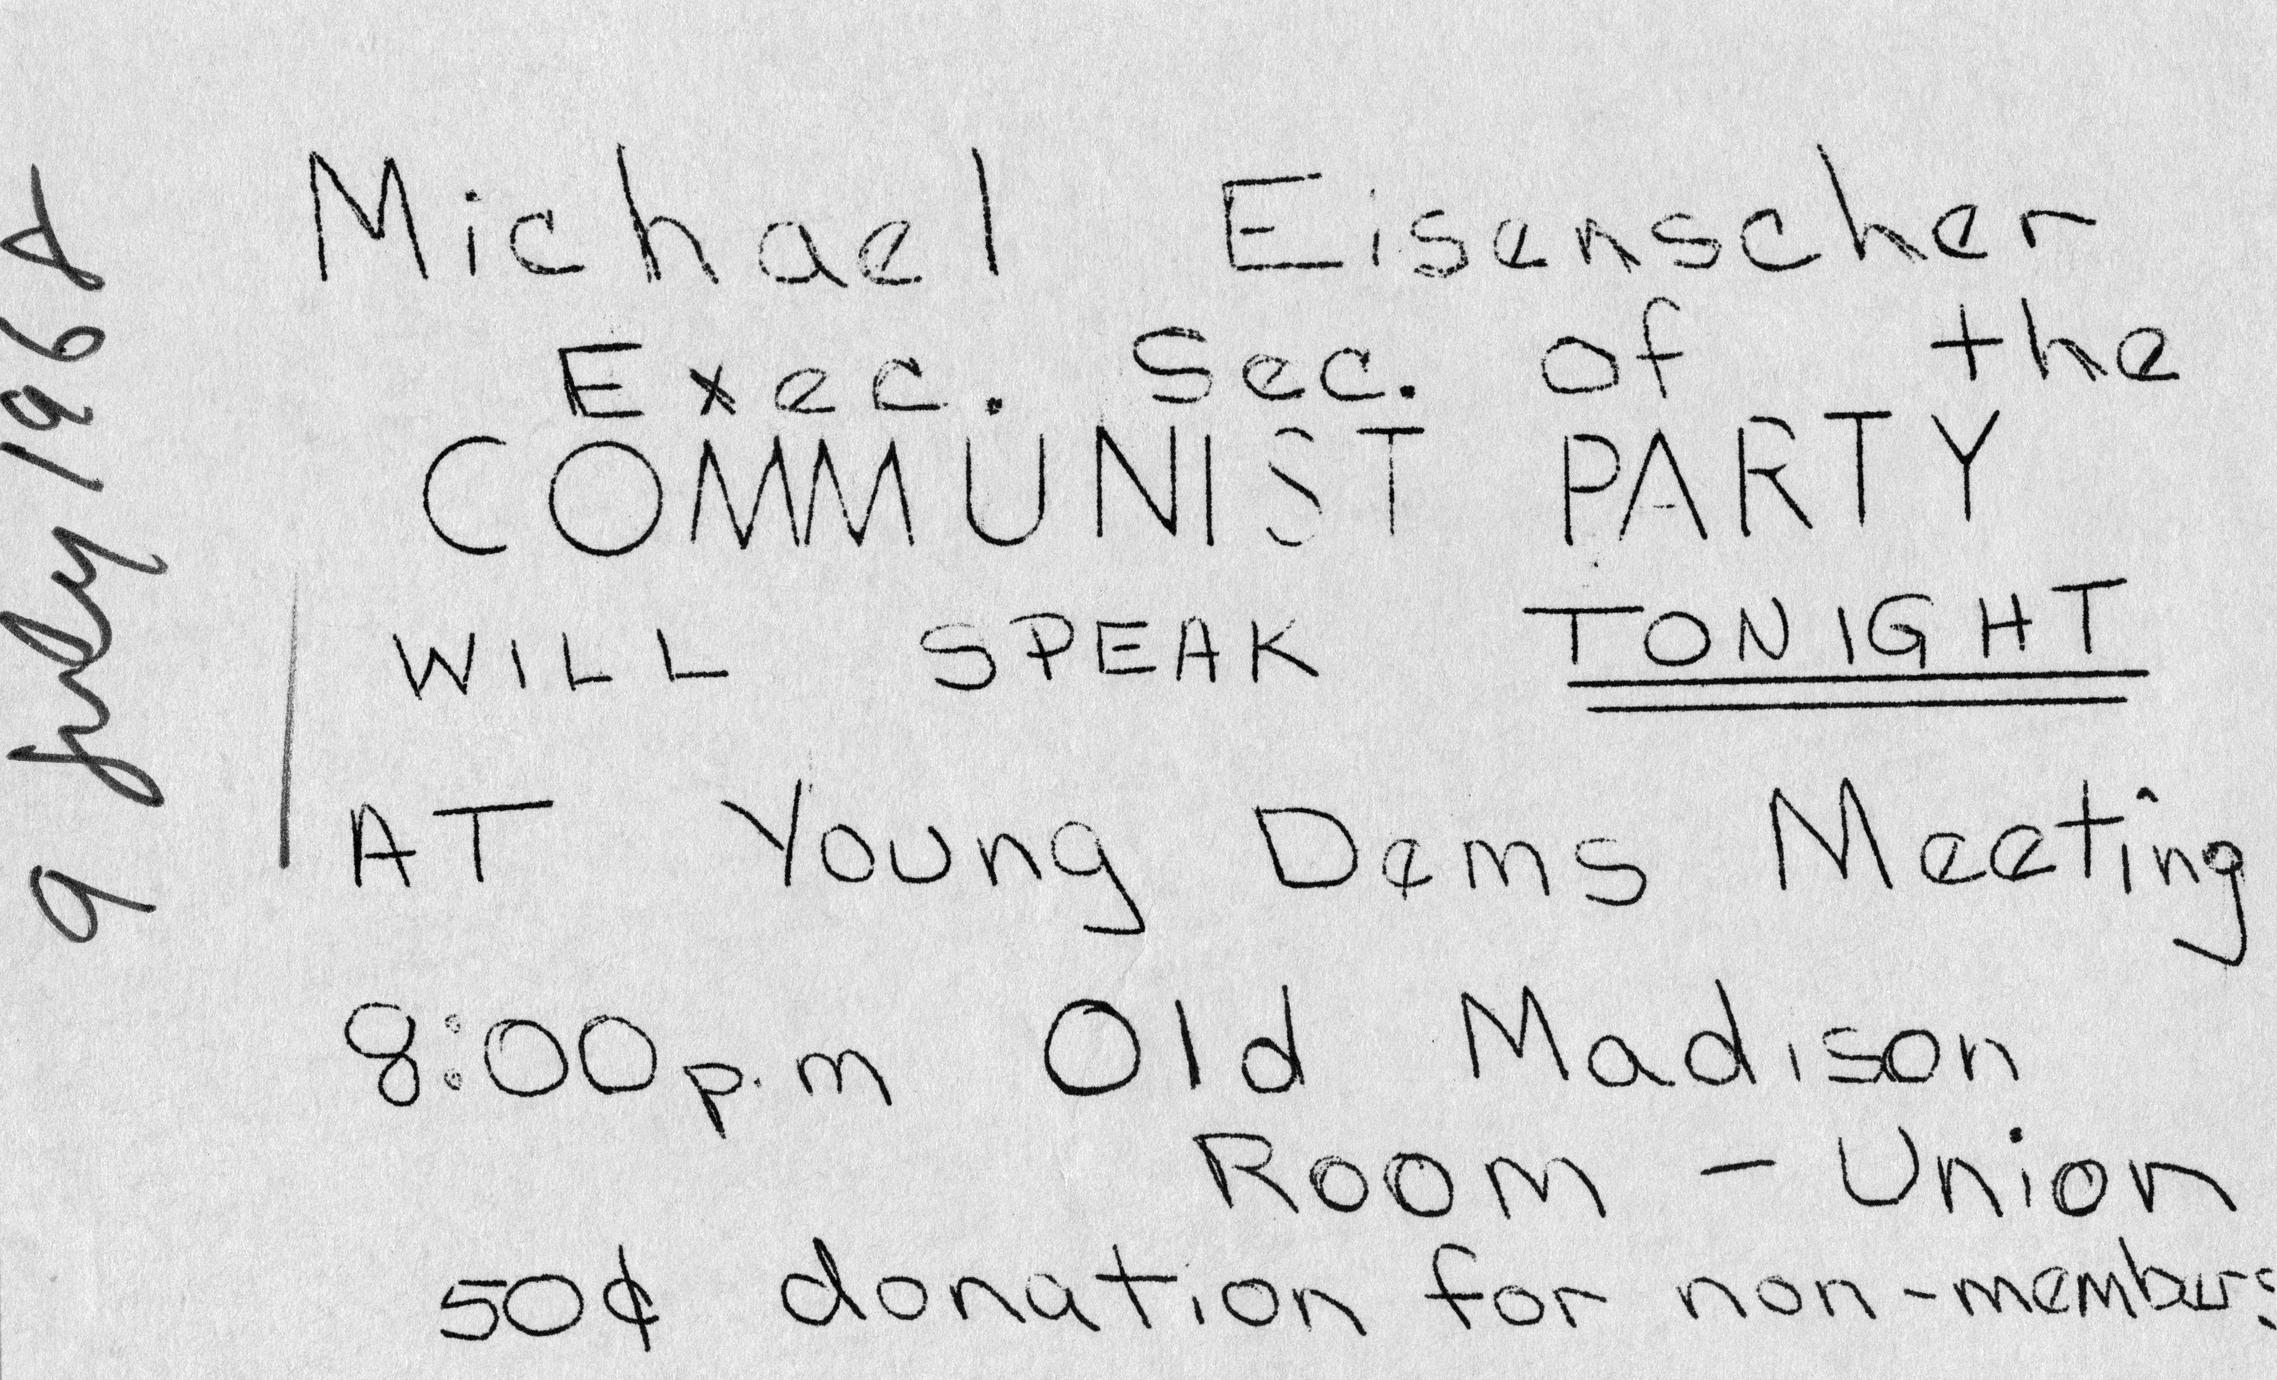 9 July 1968
Michael Eisenscher
Exec. Sec. of the
COMMUNIST PARTY
WILL SPEAK TONIGHT
AT Young Dems Meeting
8:00 p.m Old Madison
Room - Union
50¢ donation for non-members